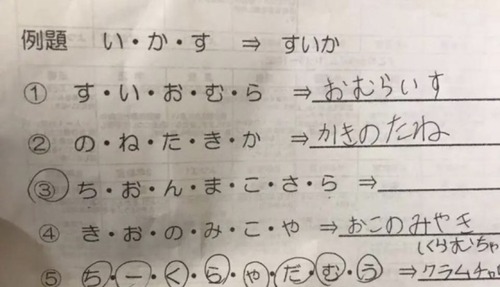 例題 い・か・す ⇒ すいか
① す・い・お・む・ら ⇒おむらいす
② の・ね・た・き・か ⇒かきのたね
③ ち・お・ん・ま・こ・さ・ら ⇒
④ き・お・の・み・こ・や ⇒おこのみやき
(くらむちゃ
⑤ ち・ー・く・ら・ゃ・だ・む・う ⇒クラムチャ